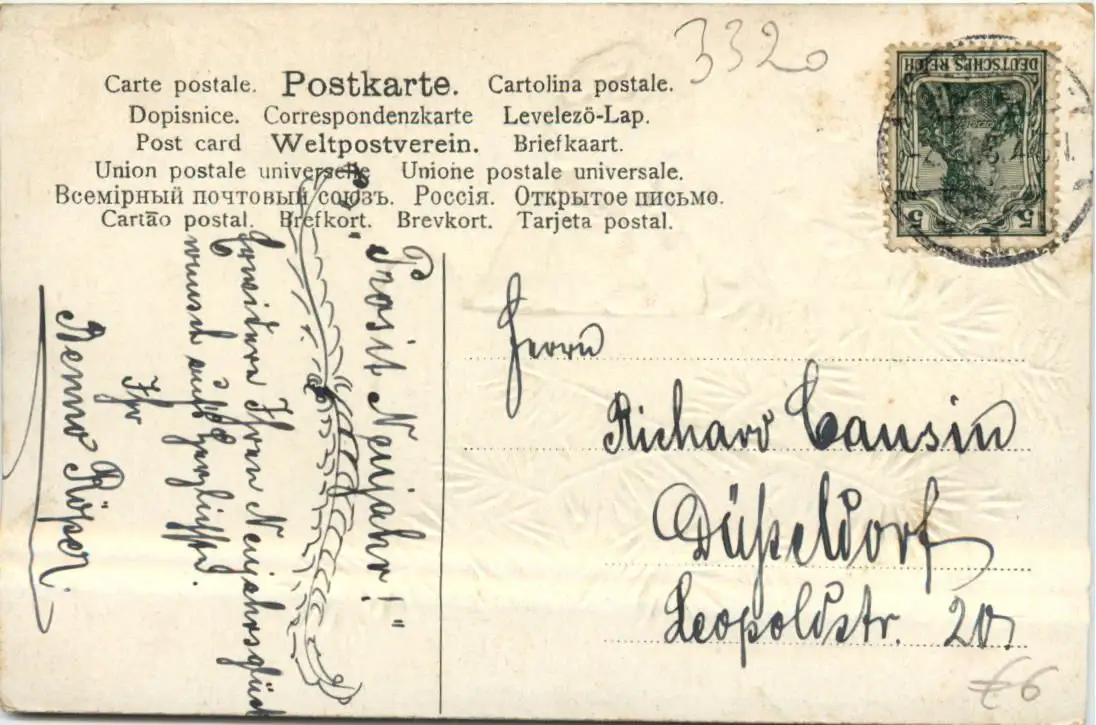 3320
Carte postale. Postkarte. Cartolina postale.
Dopisnice. Correspondenzkarte Levelező-Lap.
Post card Weltpostverein. Briefkaart.
Union postale universelle Unione postale universale.
Всемірный почтовый союзъ. Россія. Открытое письмо.
Cartāo postal. Brefkort. Brevkort. Tarjeta postal.
DEUTSCHES REICH
5 5
„Prosit Neujahr!"
Erwidere Ihren Neujahrsglück
wunsch aufs herzlichste.
Ihr
Benno Röper.
Herrn
Richard Causin
Düßeldorf
Leopoldstr. 20.
€6